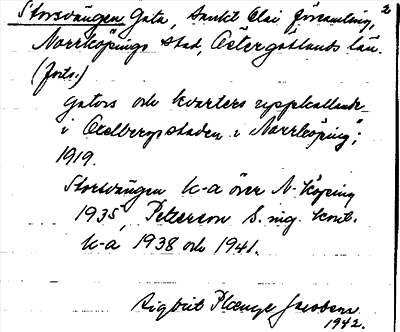 Storsvängen Gata, Sankt Olai församling, 2
Norrköpings stad, Östergötlands län.
(forts.)
gators och kvarters uppkallande
i Oxelbergsstaden i Norrköping";
1919.
Storsvängen k-a över N-köping
1935, Peterson S. ing. kont.
k-a 1938 och 1941.
Sigbrit Plænge Jacobson
1942.